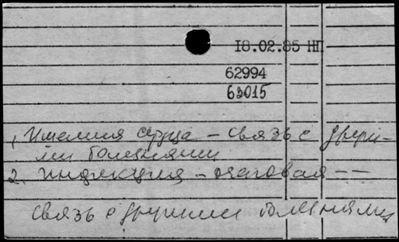 18.02.85 НГ
62994
63015
1, Ишемия сердца – связь с други-
ми болезнями
2. индукция – очаговая – –
связь с другими болезнями